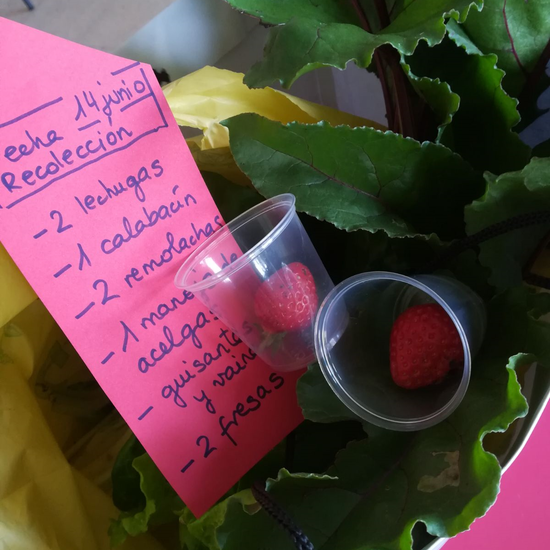 echa 14 junio
Recolección
- 2 lechugas
- 1 calabacín
- 2 remolachas
- 1 de
acelga
- guisantes
y
- 2 fresas